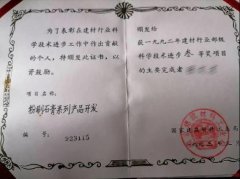 为了表彰在建材行业科
学技术进步工作中作出贡献
的个人，特颁发此证书，以
资鼓励。
项目名称
粉刷石膏系列产品开发
编号 923115
颁发给
获一九九二年建材行业部级
科学技术进步叁等奖项目
的主要完成者
国家建筑材料工业局